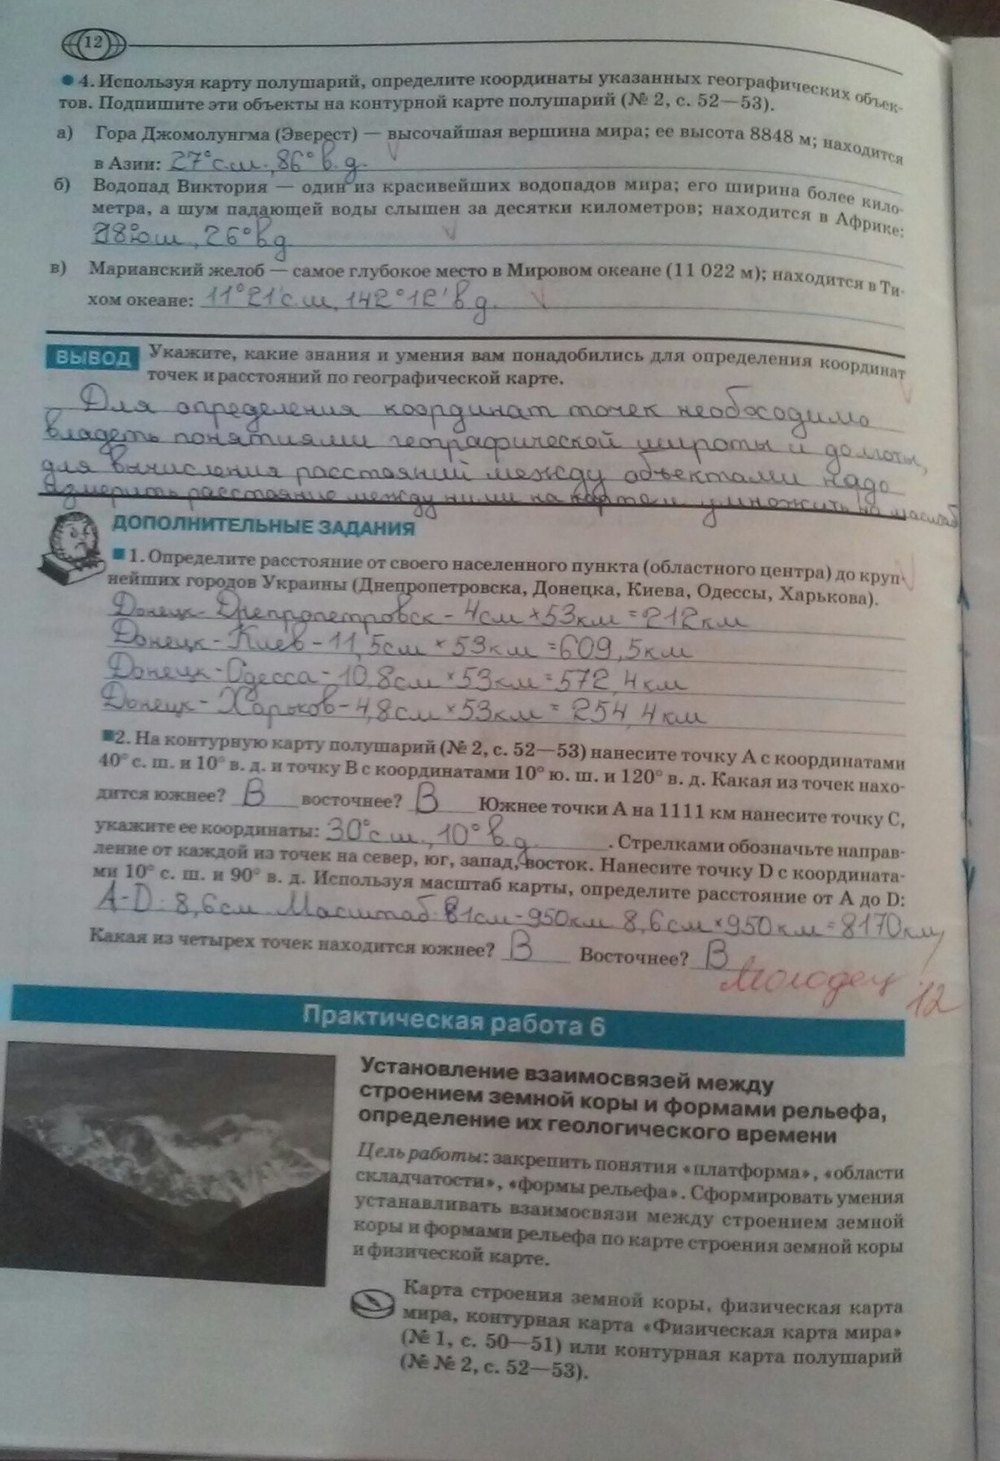 12
4. Используя карту полушарий, определите координаты указанных географических объек-
тов. Подпишите эти объекты на контурной карте полушарий (№ 2, с. 52—53).
а) Гора Джомолунгма (Эверест) — высочайшая вершина мира; ее высота 8848 м; находится
в Азии: 27° с.ш., 86° в.д.
б) Водопад Виктория — один из красивейших водопадов мира; его ширина более кило-
метра, а шум падающей воды слышен за десятки километров; находится в Африке:
18° ю.ш., 26° в.д
в) Марианский желоб — самое глубокое место в Мировом океане (11 022 м); находится в Ти-
хом океане: 11°21' с.ш, 142°12' в.д.
ВЫВОД Укажите, какие знания и умения вам понадобились для определения координат
точек и расстояний по географической карте.
Для определения координат точек необходимо
владеть понятиями географической широты и долготы,
для вычисления расстояний между объектами надо
измерить расстояние между ними на карте и умножить на масштаб
ДОПОЛНИТЕЛЬНЫЕ ЗАДАНИЯ
1. Определите расстояние от своего населенного пункта (областного центра) до круп-
нейших городов Украины (Днепропетровска, Донецка, Киева, Одессы, Харькова).
Донецк-Днепропетровск - 4см × 53км = 212км
Донецк-Киев - 11,5см × 53км = 609,5км
Донецк-Одесса - 10,8см × 53км = 572,4км
Донецк-Харьков - 4,8см × 53км = 254,4км
2. На контурную карту полушарий (№ 2, с. 52—53) нанесите точку А с координатами
40° с. ш. и 10° в. д. и точку В с координатами 10° ю. ш. и 120° в. д. Какая из точек нахо-
дится южнее? В восточнее? В Южнее точки А на 1111 км нанесите точку С,
укажите ее координаты: 30° с.ш., 10° в.д. . Стрелками обозначьте направ-
ление от каждой из точек на север, юг, запад, восток. Нанесите точку D с координата-
ми 10° с. ш. и 90° в. д. Используя масштаб карты, определите расстояние от А до D:
A-D: 8,6см. Масштаб: в 1см - 950км 8,6см × 950км = 8170км
Какая из четырех точек находится южнее? В Восточнее? В
Молодец 12
Практическая работа 6
Установление взаимосвязей между
строением земной коры и формами рельефа,
определение их геологического времени
Цель работы: закрепить понятия «платформа», «области
складчатости», «формы рельефа». Сформировать умения
устанавливать взаимосвязи между строением земной
коры и формами рельефа по карте строения земной коры
и физической карте.
Карта строения земной коры, физическая карта
мира, контурная карта «Физическая карта мира»
(№ 1, с. 50—51) или контурная карта полушарий
(№ № 2, с. 52—53).